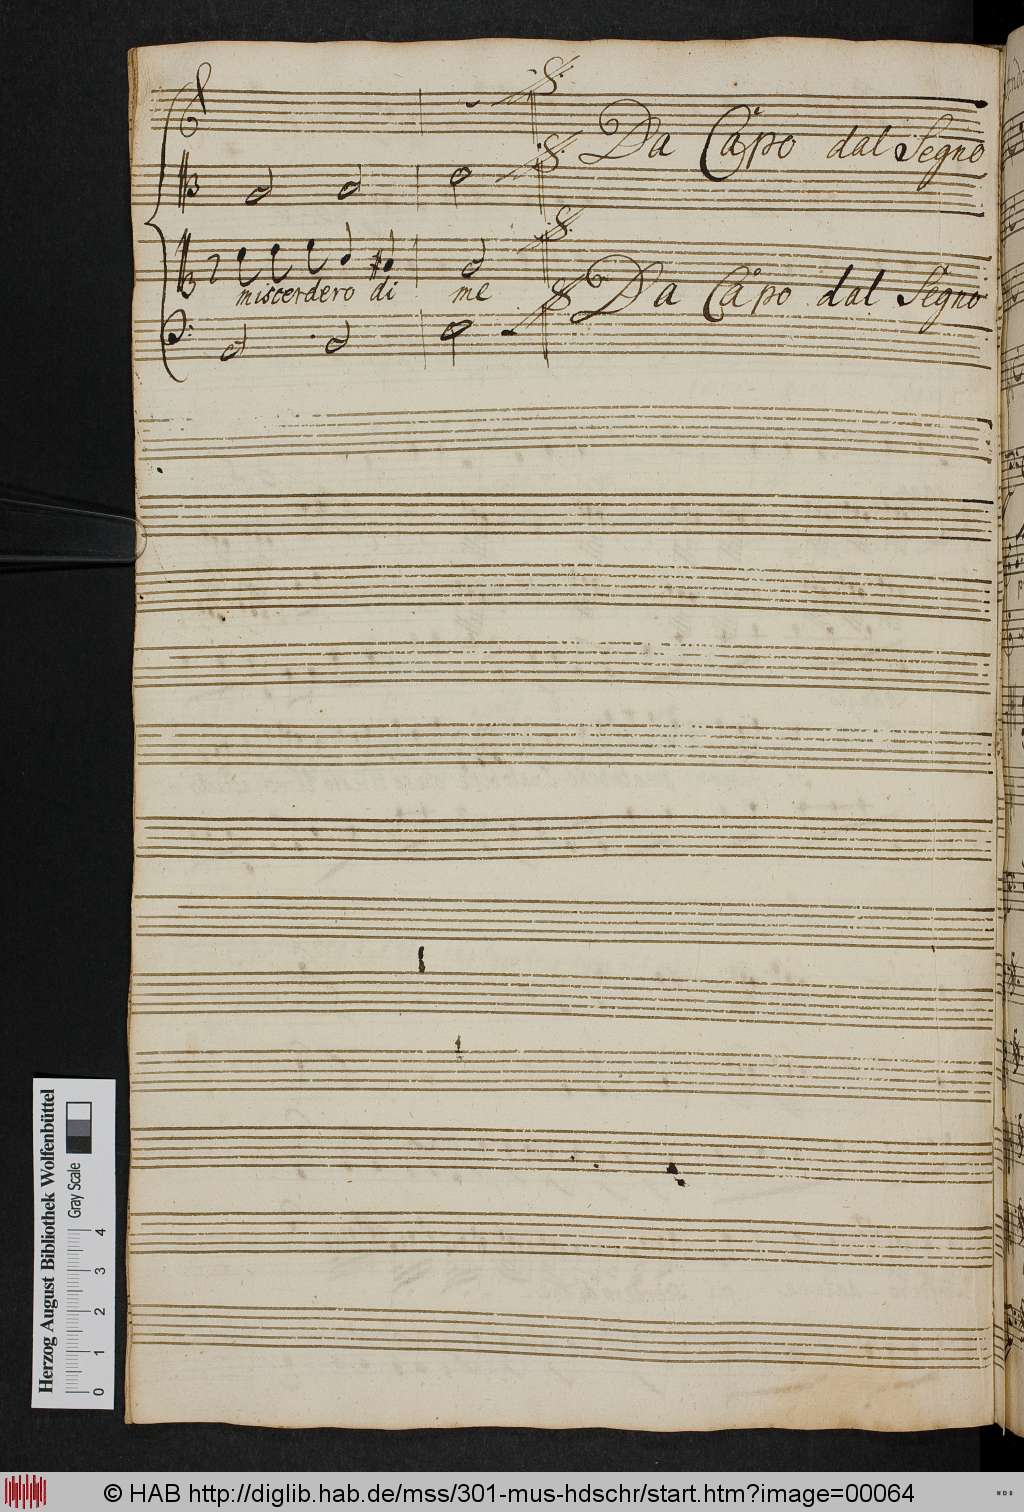 Da Capo dal Segno
miscerdero di me
Da Capo dal Segno
Herzog August Bibliothek Wolfenbüttel
Gray Scale
0 1 2 3 4
© HAB http://diglib.hab.de/mss/301-mus-hdschr/start.htm?image=00064